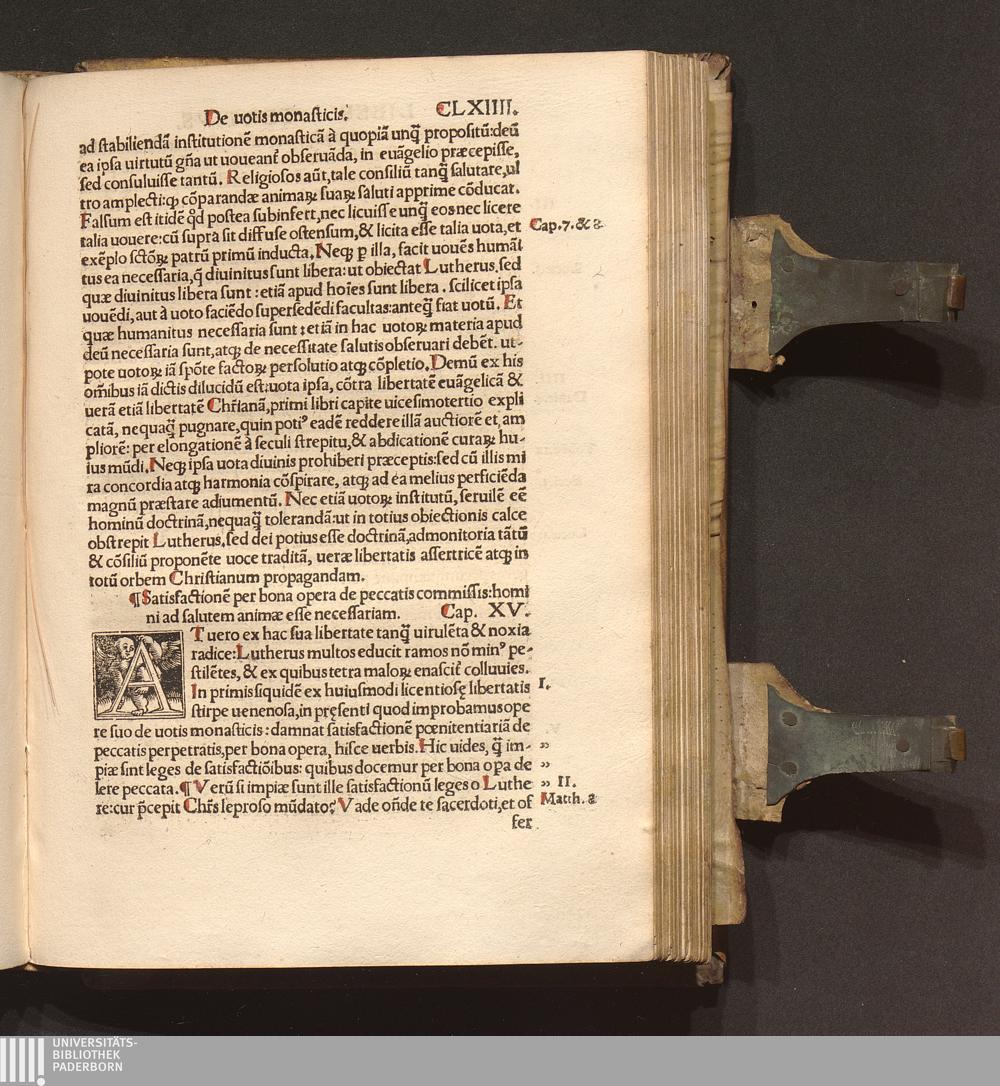 De uotis monasticis. CLXIIII.
ad stabiliendã institutionẽ monasticã à quopiã unq̃ propositũ:deũ
ea ipsa uirtutũ gña ut uoueant̃ obseruãda, in euãgelio præcepisse,
sed consuluisse tantũ. Religiosos aũt,tale consiliũ tanq̃ salutare,ul
tro amplecti:qꝫ cõparandæ animaꝝ suaꝝ saluti apprime cõducat.
Falsum est itidẽ qd̃ postea subinfert,nec licuisse unq̃ eos nec licere
talia uouere:cũ supra sit diffuse ostensum,& licita esse talia uota,et
Cap.7.& 8
exẽplo sctõꝝ patrũ primũ inducta. Neqꝫ ꝑ illa, facit uouẽs humãi
tus ea necessaria,q̃ diuinitus sunt libera: ut obiectat Lutherus.sed
quæ diuinitus libera sunt : etiã apud hoĩes sunt libera . scilicet ipsa
uouẽdi,aut à uoto faciẽdo supersedẽdi facultas:anteq̃ fiat uotũ. Et
quæ humanitus necessaria sunt : etiã in hac uotoꝝ materia apud
deũ necessaria sunt,atqꝫ de necessitate salutis obseruari debẽt. ut-
pote uotoꝝ iã spõte factoꝝ persolutio atqꝫ cõpletio. Demũ ex his
om̃ibus iã dictis dilucidũ est:uota ipsa, cõtra libertatẽ euãgelicã &
uerã etiã libertatẽ Chr̃ianã,primi libri capite uicesimotertio expli
catã, nequaq̃ pugnare,quin potiꝰ eadẽ reddere illã auctiorẽ et am
pliorẽ: per elongationẽ à seculi strepitu,& abdicationẽ curaꝝ hu-
ius mũdi. Neqꝫ ipsa uota diuinis prohiberi præceptis:sed cũ illis mi
ra concordia atqꝫ harmonia cõspirare, atqꝫ ad ea melius perficiẽda
magnũ præstare adiumentũ. Nec etiã uotoꝝ institutũ, seruilẽ eẽ
hominũ doctrinã,nequaq̃ tolerandã:ut in totius obiectionis calce
obstrepit Lutherus,sed dei potius esse doctrinã,admonitoria tãtũ
& cõsiliũ proponẽte uoce traditã, ueræ libertatis assertricẽ atqꝫ in
totũ orbem Christianum propagandam.
¶Satisfactionẽ per bona opera de peccatis commissis:homi
ni ad salutem animæ esse necessariam. Cap. XV.
AT uero ex hac sua libertate tanq̃ uirulẽta & noxia
radice:Lutherus multos educit ramos nõ minꝰ pe-
stilẽtes, & ex quibus tetra maloꝝ enascit̃ colluuies.
In primis siquidẽ ex huiusmodi licentiosę libertatis
I.
stirpe uenenosa,in pręsenti quod improbamus ope
re suo de uotis monasticis : damnat satisfactionẽ pœnitentiariã de
peccatis perpetratis,per bona opera, hisce uerbis. Hic uides, q̃ im- „
piæ sint leges de satisfactiõibus: quibus docemur per bona oꝑa de „
lere peccata. ¶ Verũ si impiæ sunt ille satisfactionũ leges o Luthe „ II.
re:cur p̃cepit Chr̃s leproso mũdato: Vade oñde te sacerdoti,et of
Matth. 8
fer
UNIVERSITÄTS-
BIBLIOTHEK
PADERBORN